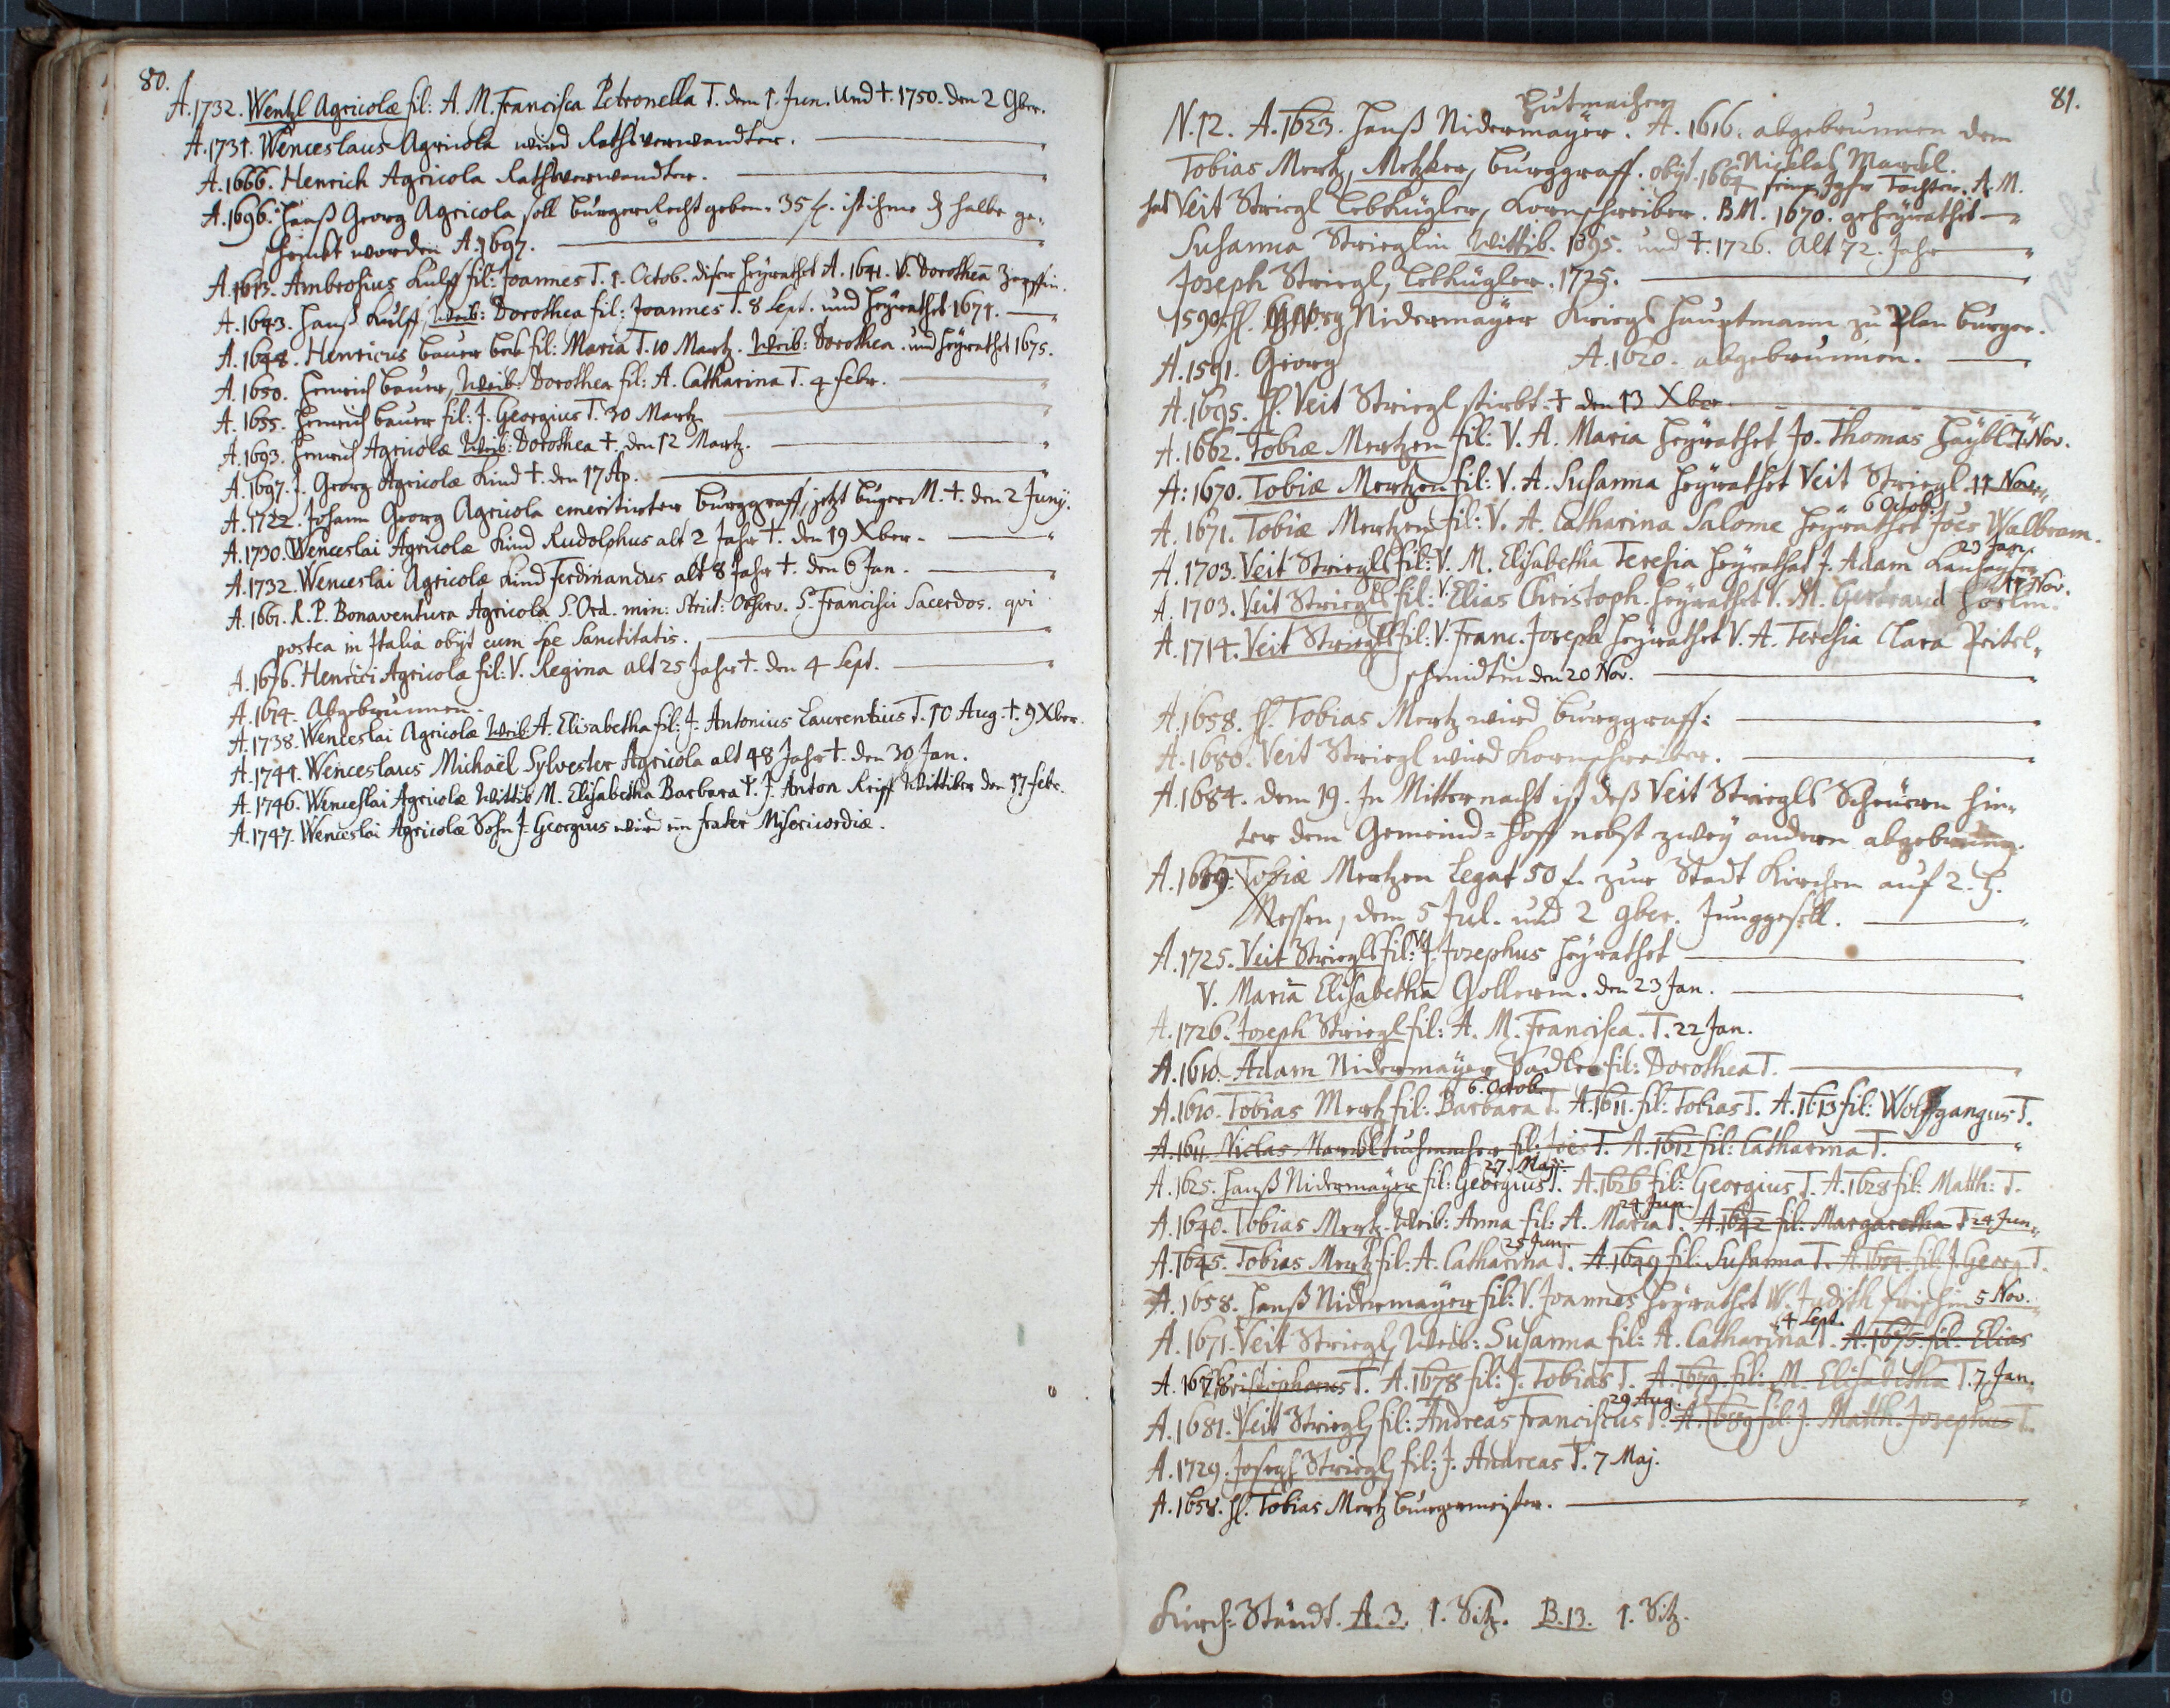 80.
A. 1732. Wentzl Agricolæ fil: A. M. Francisca Petronella T. dem 1. Jun. und †. 1750. den 2 9ber.
A. 1731. Wenceslaus Agricola wird Rathsverwandter.
A. 1666. Henrich Agricola Rathsverwandter.
A. 1696. Hanß Georg Agricola soll burgerrecht geben. 35 f. ist ihme halbe ge-
schenkt worden A. 1697.
A. 1613. Ambrosius Kulff fil: Joannes T. 1. Octob. diser heÿrathet A. 1641. V. Dorothea
A. 1643. Hanß Kulff, Weib: Dorothea fil: Joannes T. 8 Sept. und heÿrathet 1674.
A. 1648. Henricus bauer fil: Maria T. 10 Martz. Weib: Dorothea. und heÿrathet 1675.
A. 1650. Henrich bauer, Weib: Dorothea fil: A. Catharina T. 4 febr.
A. 1655. Henrich bauer fil: J. Georgius T. 30 Martz
A. 1693. Henrich Agricolæ Weib: Dorothea † den 12 Martz.
A. 1697. J. Georg Agricolæ Kind †. den 17 Ap.
A. 1722. Johann Georg Agricola emeritirter burggraff, jetzt burger M. †. den 2 Junÿ.
A. 1730. Wenceslai Agricolæ Kind Rudolphus alt 2 Jahr †. den 19 Xber.
A. 1732. Wenceslai Agricolæ Kind Ferdinandus alt 8 Jahr †. den 6 Jan.
A. 1661. R. P. Bonaventura Agricola S. Ord. min: Strict: Observ. S. Francisci Sacerdos. qui
postea in Italia obijt cum spe Sanctitatis.
A. 1676. Henrici Agricola fil: V. Regina alt 25 Jahr †. den 4 Sept.
A. 1614. Abgebrunnen.
A. 1738. Wenceslai Agricolæ Weib A. Elisabetha fil: J. Antonius Laurentius T. 10 Aug. †. 9 Xber.
A. 1744. Wenceslaus Michaël Sylvester Agricola alt 48 Jahr †. den 30 Jan.
A. 1746. Wenceslai Agricolæ Wittib M. Elisabetha Barbara T. J. Anton Wittiber den 17 febr.
A. 1747. Wenceslai Agricolæ Sohn J. Georgius wird ein frater Misericordiæ.
81.
Hutmacher
N. 12. A. 1623. Hanß Nidermaÿer. A. 1616. abgebrunnen dem
Nicklas Mardl.
Tobias Mertz, Metzker, burggraff. obijt. 1664 seine Jgfr Tochter. A. M.
hat Veit Striegl Lebküglser, Kornschreiber. BM. 1670. geheÿrathet
Susanna Strieglin Wittib. 1695. und †. 1726. alt 72. Jahr
Joseph Striegl, Lebküglser. 1725.
1590. H. Georg Nidermaÿer Kriegs Hauptmann zu Plan burger.
A. 1591. Georg A. 1620. abgebrunnen.
A. 1695. H. Veit Striegl stirbt. † den 13 Xber
A. 1662. Tobiæ Mertzen fil: V. A. Maria heÿrathet Jo. Thomas Haÿbl 7. Nov.
A: 1670. Tobiæ Mertzen fil: V. A. Susanna heÿrathet Veit Striegl. 11 Nov.
6 Octob.
A. 1671. Tobiæ Mertzen fil: V. A. Catharina Salome heÿrathet Joes Walbram.
23 Jan.
A. 1703. Veit Striegls fil: V. M. Elisabetha Teresia heÿrathet J. Adam
17 Nov.
A. 1703. Veit Striegls fil: V. Elias Christoph. heÿrathet V. M. Gertraud
A. 1714. Veit Striegls fil: V. Franc. Joseph heÿrathet V. A. Teresia Clara Peitel-
schmidtin den 20 Nov.
A. 1658. H. Tobias Mertz wird burggraff:
A. 1680. Veit Striegl wird Kornschreiber.
A. 1684. dem 19. In Mitternacht ist deß Veit Striegls Scheüern hin-
ter dem Gemeind-Hoff nebst zweÿ andern abgebrunnen.
A. 1689. Tobiæ Mertzen Legat 50 f. zur Stadt Kirchen auf 2. H.
Messen, dem 5 Jul. und 2 9ber. Junggesell.
A. 1725. Veit Striegls fil: V. J. Josephus heÿrathet
V. Maria Elisabetha Gollerin. den 23 Jan.
A. 1726. Joseph Striegl fil: A. M. Francisca. T. 22 Jan.
A. 1610. Adam Nidermaÿer fil: Dorothea T.
6. Octob.
A. 1610. Tobias Mertz fil: Barbara T. A. 1611. fil: Tobias T. A. 1613 fil: Wolfgangus T.
A. 1611. Niclas Mardl tuchmacher fil: Joes T. A. 1612 fil: Catharina T.
27. Maij.
A. 1625. Hanß Nidermaÿer fil: Georgius T. A. 1626 fil: Georgius T. A. 1628 fil: Matth: T.
24 Jun.
A. 1640. Tobias Mertz. Weib: Anna fil: A. Maria T. A. 1642 fil: Margaretha T 24 Jun.
25 Jun.
A. 1645. Tobias Mertz fil: A. Catharina T. A. 1649 fil: Susanna T. A. 1654. fil: J. Georg T.
A. 1658. Hanß Nidermaÿer fil: V. Joannes heÿrathet W. Judith 5 Nov.
4 Sept.
A. 1671. Veit Striegl, Weib: Susanna fil: A. Catharina T. A. 1675. fil: Elias
A. 1678 Christophorus T. A. 1678 fil: J. Tobias T. A. 1679. fil: M. Elisabetha T. 7 Jan.
29 Aug.
A. 1681. Veit Striegl, fil: Andreas Franciscus T. A. 1689 fil: J. Matth. Josephus T.
A. 1729. Joseph Striegl, fil: J. Andreas T. 7 Maj.
A. 1658. H. Tobias Mertz burgermeister.
Kirch-Ständt. A. 3. 1. Sitz. B. 13. 1. Sitz.